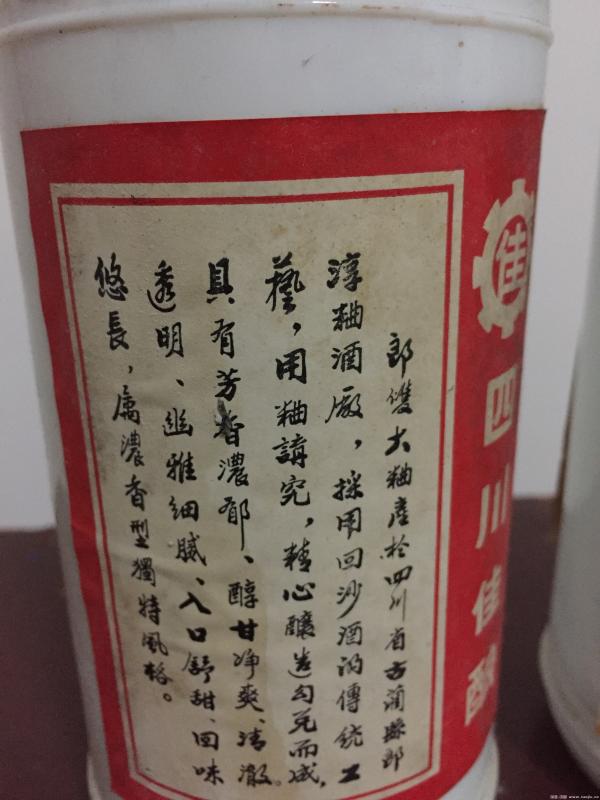 佳
四川佳酿
郎雙大粬產於四川省古藺縣郎
淳粬酒廠，採用回沙酒的傳統工
藝，用粬講究，精心釀造勾兌而成，
具有芳香濃郁、醇甘净爽、清澈
透明、幽雅細膩、入口舒甜、回味
悠長，屬濃香型獨特風格。